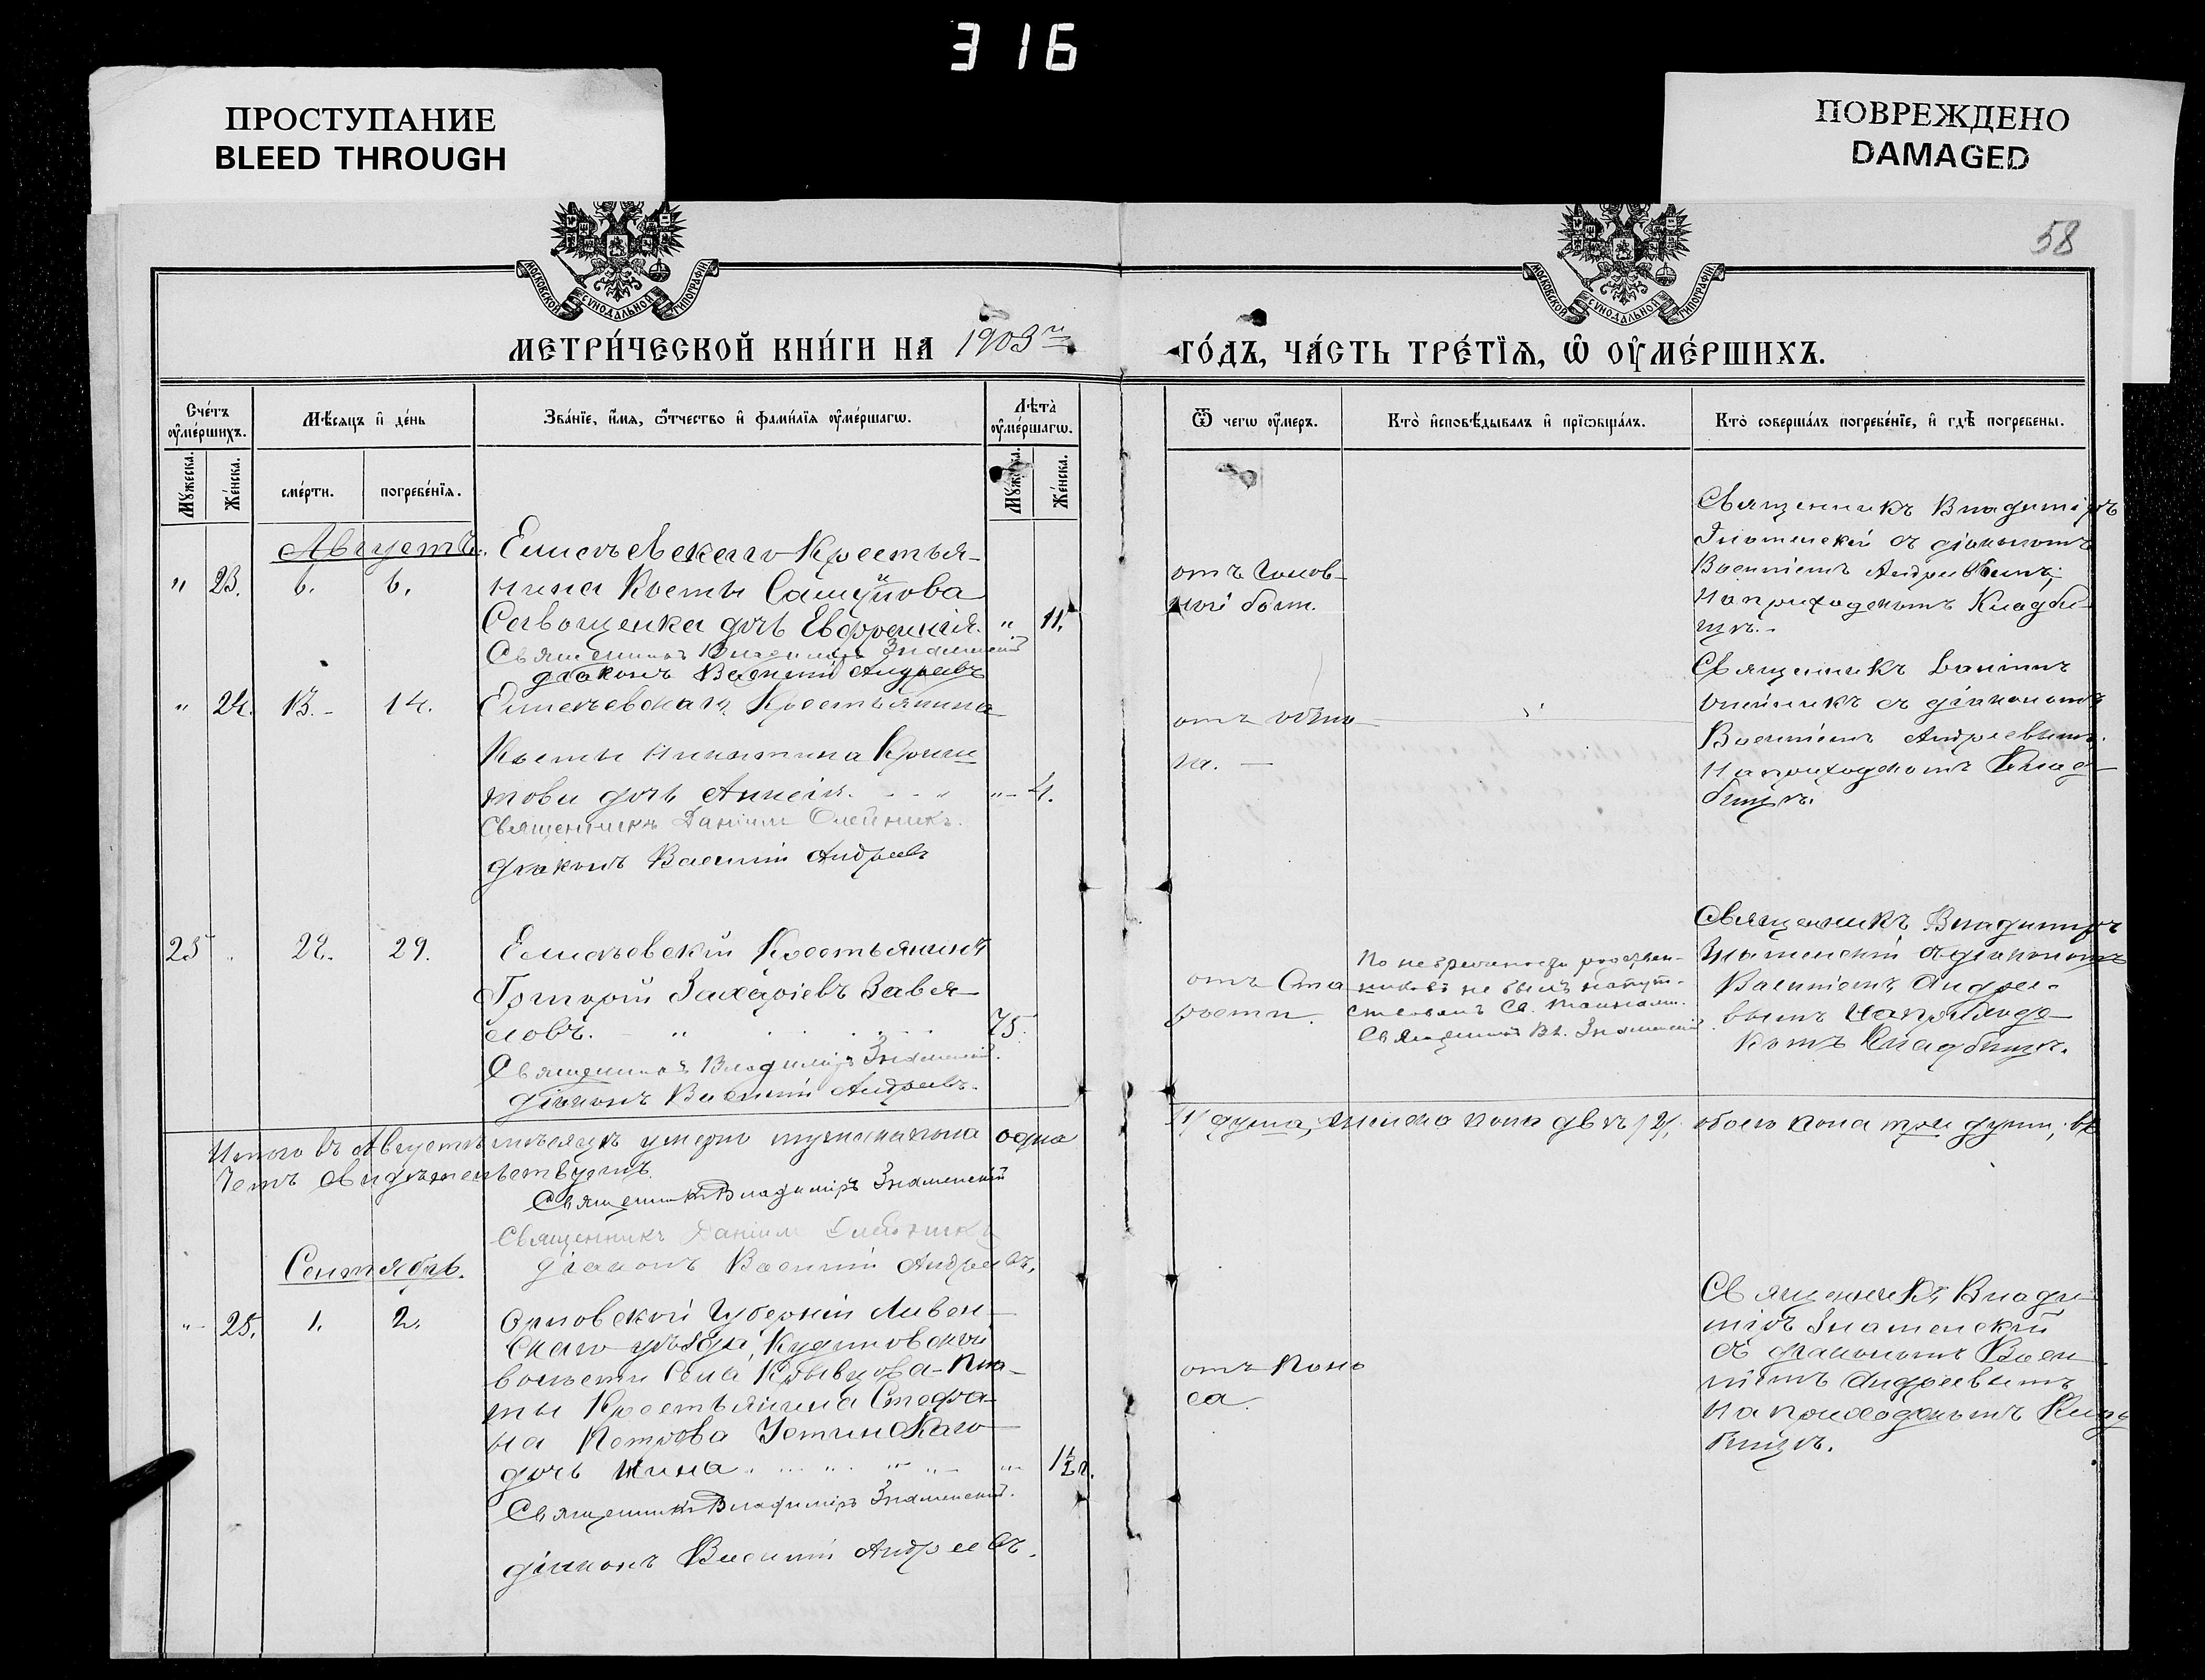 316
ПРОСТУПАНИЕ
BLEED THROUGH
ПОВРЕЖДЕНО
DAMAGED
58
МОСКОВСКОЙ СѴНОДАЛЬНОЙ ТИПОГРАФІИ
МОСКОВСКОЙ СѴНОДАЛЬНОЙ ТИПОГРАФІИ
МЕТРИ́ЧЕСКОЙ КНИ́ГИ НА 1903й
ГО́ДЪ, ЧА́СТЬ ТРЕ́ТЇѦ, Ѡ ОУ҆МЕ́РШИХЪ.
Сче́тъ оу҆ме́ршихъ.
Мѣ́сяцъ и҆ де́нь
Зва́нїе, и҆́мѧ, ѻ҆́тчество и҆ фами́лїѧ оу҆ме́ршагѡ.
Лѣ́та оу҆ме́ршагѡ.
Ѿ чегѡ̀ оу҆́меръ.
Кто̀ и҆сповѣ́дывалъ и҆ прїѻбща́лъ.
Кто̀ соверша́лъ погребе́нїе, и҆ гдѣ̀ погребены.
Мꙋ́жеска.
Же́нска.
сме́рти.
погребе́нїѧ.
Мꙋ́жеска.
Же́нска.
Августъ.
" 23. 6. 6.
Крестья-
нина Косты
дочь " 11.
Священникъ Владиміръ Знаменскій
діаконъ Василій Андреевъ
отъ голов-
ной боли.
Священникъ Владиміръ
Знаменскій съ діакономъ
Василіемъ Андреевымъ,
на приходскомъ кладби-
щѣ.
" 24. 13. 14.
Крестьянина
Косты Никитина
дочь "- 4.
Священникъ Даніилъ Олейникъ.
діаконъ Василій Андреевъ
Священникъ Даніилъ
Олейникъ съ діакономъ
Василіемъ Андреевымъ.
На приходскомъ клад-
бищѣ.
25 " 28. 29.
Крестьянинъ
Григорій Захаріевъ Завья-
ловъ. 75.
Священникъ Владиміръ Знаменскій.
діаконъ Василій Андреевъ.
отъ ста-
рости.
не былъ напут-
ствованъ Св. Тайнами.
Священникъ Вл. Знаменскій.
Священникъ Владиміръ
Знаменскій съ діакономъ
Василіемъ Андрее-
вымъ на приход-
комъ кладбищѣ.
Итого въ Августѣ мѣсяцѣ умерло мужеска пола одна
/1/ душа, женска пола двѣ /2/, обоего пола три души; въ
чемъ свидѣтельствуемъ.
Священникъ Владиміръ Знаменскій
Священникъ Даніилъ Олейникъ
діаконъ Василій Андреевъ.
Сентябрь.
"- 25. 1. 2.
Орловской губерніи Ливен-
скаго уѣзда,
волости села Кривцова-Пло-
ты Крестьянина Стефа-
на Петрова
дочь 1½ г.
Священникъ Владиміръ Знаменскій.
діаконъ Василій Андреевъ.
отъ поно-
са.
Священникъ Влади-
міръ Знаменскій
съ діакономъ Васи-
ліемъ Андреевымъ
на приходскомъ клад-
бищѣ.